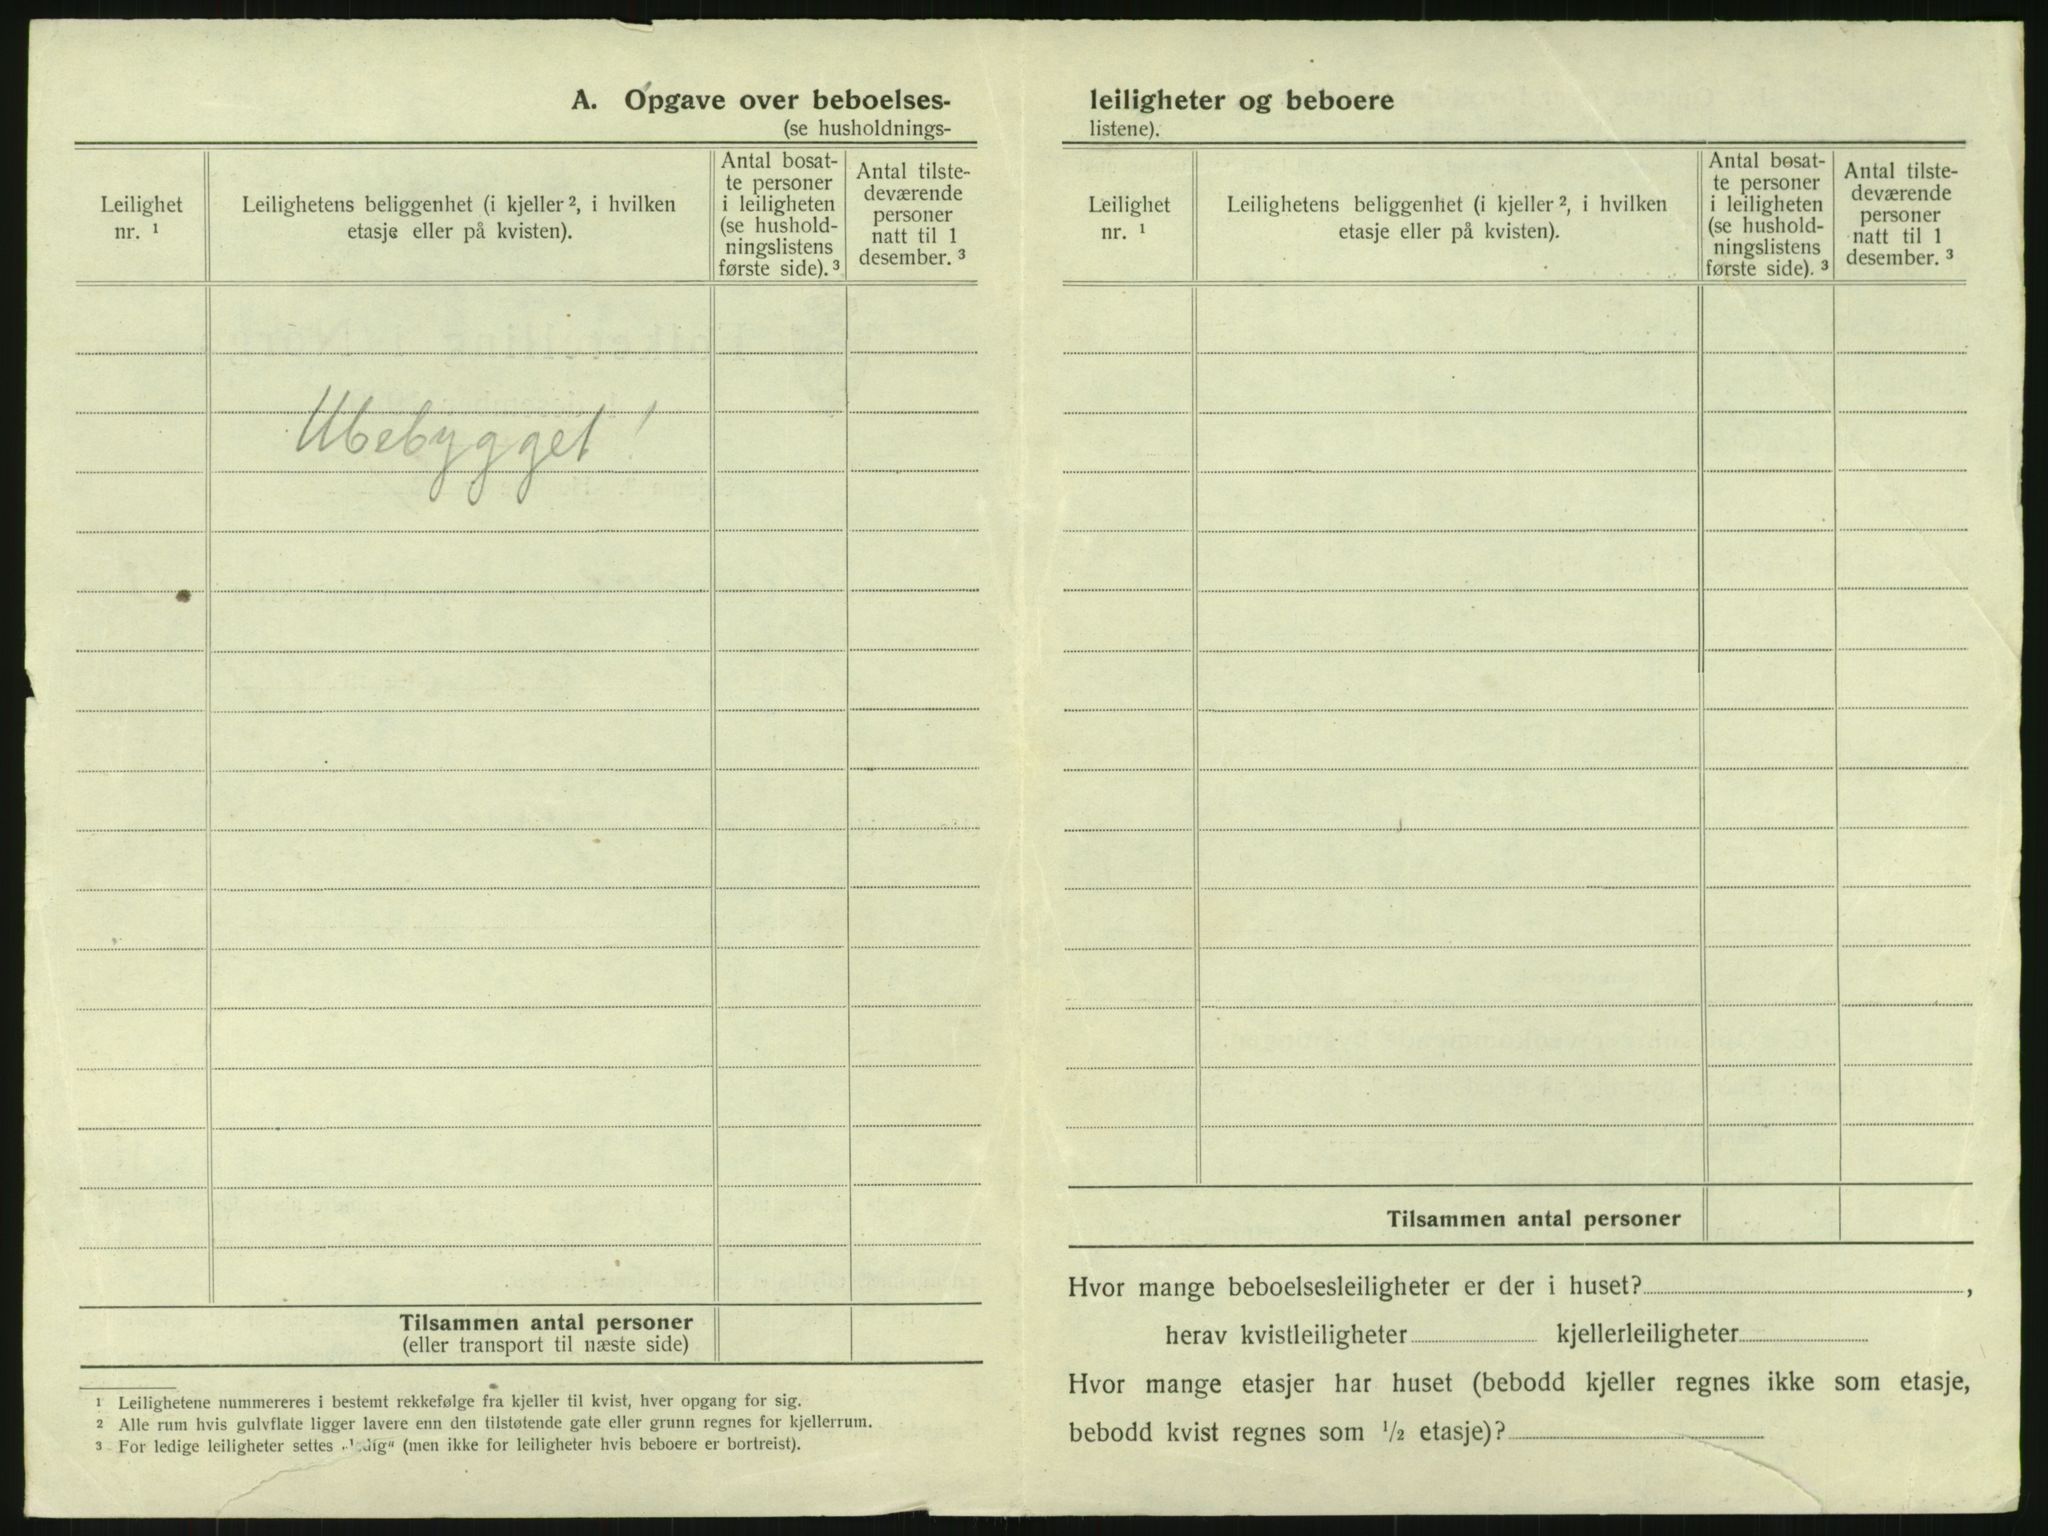 A. Opgave over beboelses-
(se husholdnings-
Leilighet
nr. ¹
Leilighetens beliggenhet (i kjeller ², i hvilken
etasje eller på kvisten).
Antal bosat-
te personer
i leiligheten
(se hushold-
ningslistens
første side). ³
Antal tilste-
deværende
personer
natt til 1
desember. ³
Ubebygget!
Tilsammen antal personer
(eller transport til næste side)
¹ Leilighetene nummereres i bestemt rekkefølge fra kjeller til kvist, hver opgang for sig.
² Alle rum hvis gulvflate ligger lavere enn den tilstøtende gate eller grunn regnes for kjellerrum.
³ For ledige leiligheter settes „ledig“ (men ikke for leiligheter hvis beboere er bortreist).
leiligheter og beboere
listene).
Leilighet
nr. ¹
Leilighetens beliggenhet (i kjeller ², i hvilken
etasje eller på kvisten).
Antal bosat-
te personer
i leiligheten
(se hushold-
ningslistens
første side). ³
Antal tilste-
deværende
personer
natt til 1
desember. ³
Tilsammen antal personer
Hvor mange beboelsesleiligheter er der i huset? ,
herav kvistleiligheter kjellerleiligheter
Hvor mange etasjer har huset (bebodd kjeller regnes ikke som etasje,
bebodd kvist regnes som ½ etasje)?